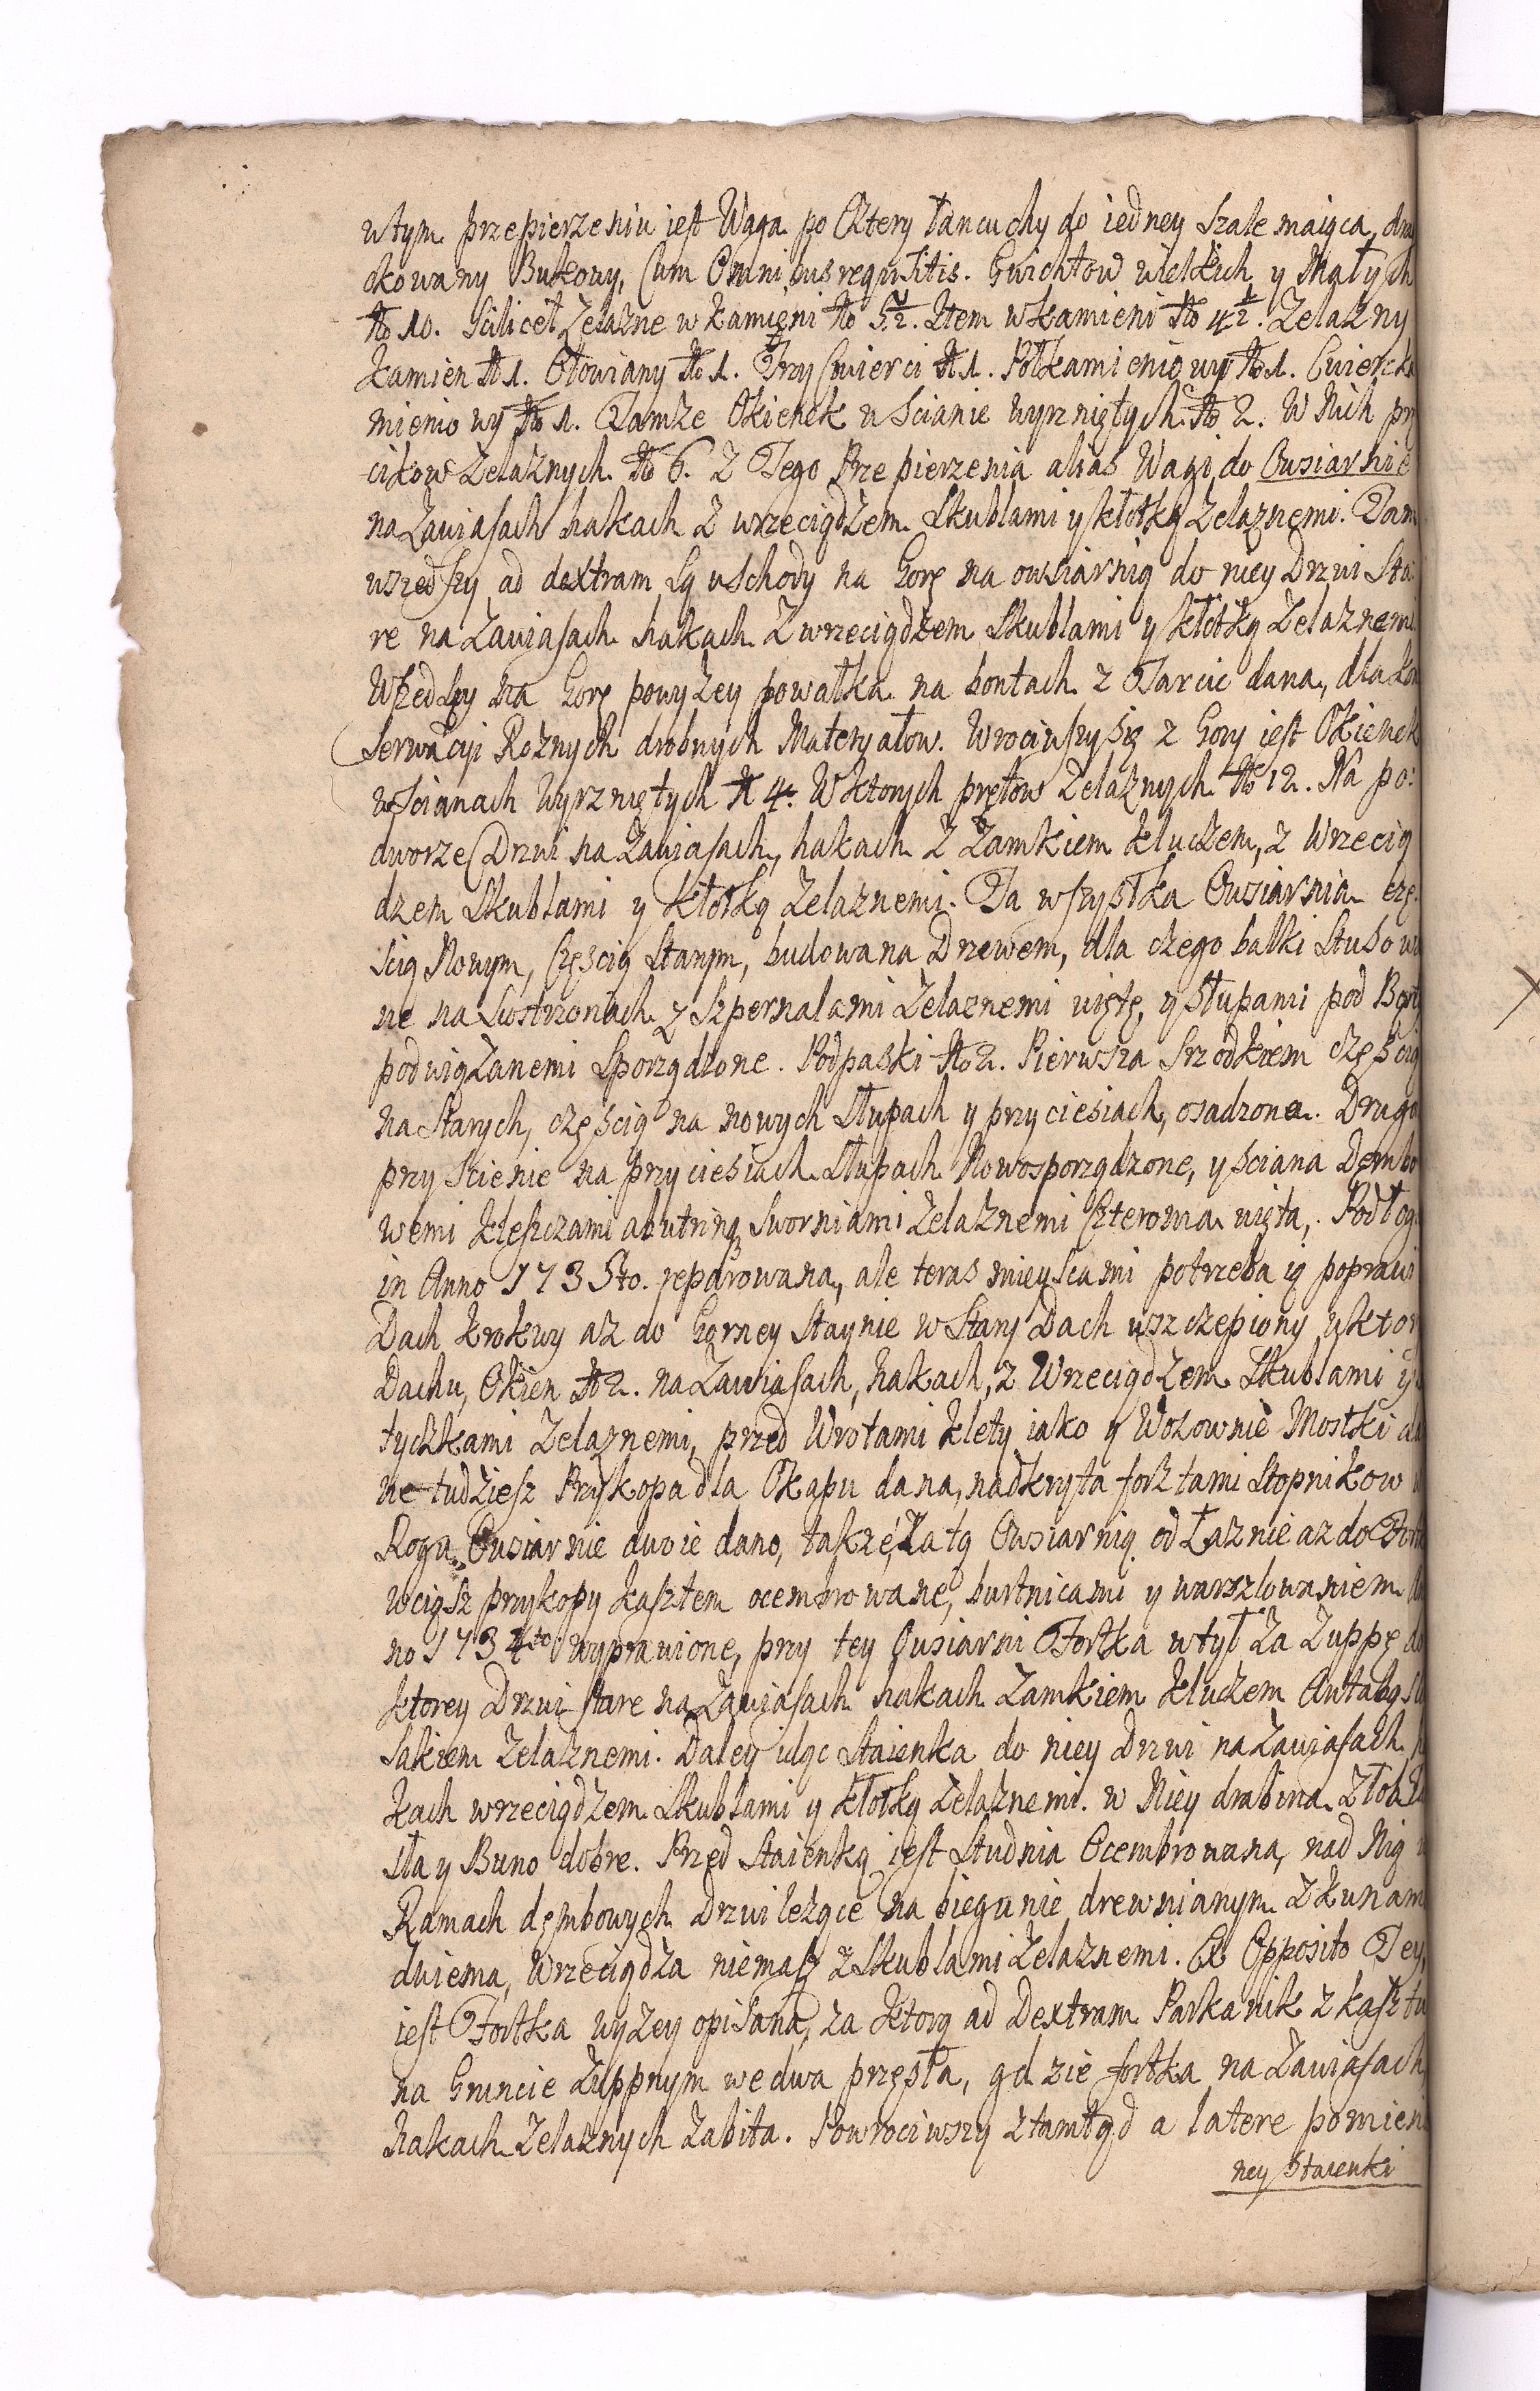 w tym przepierzeniu iest Waga po Cztery łancuchy do iedney szale maiąca,
ckowany Bukowy, Cum Omnibus requisitis. Gwichtow wielkich y Małych
No 10. Scilicet Zelazne w kamieni No 5½. Item w kamieni No 4½. Zelazny
kamien No 1. Ołowiany No 1. Trzy Cwierci No 1. Połkamieniowy No 1. Cwiercka
mieniowy No 1. Tamze Okienek w Scianie wyrzniętych No 2. W Nich prę
cikow Zelaznych No 6. Z Tego Przepierzenia alias Wagi do Owsiarnie
na Zawiasach hakach z wrzeciądzem Skublami y kłotką Zelaznemi. Tam
wszedszy ad dextram są wschody na Gorę na owsiarnią do niey Drzwi Sta:
re na Zawiasach hakach z wrzeciądzem Skublami y kłotką Zelaznemi
Wszedszy na Gorę powyzey powałka na bontach z Tarcic dana, dla kon
Serwacyi Roznych drobnych Materyałow. Wrociwszy się z Gory iest Okienek
w Scianach wyrzniętych No 4. W ktorych prętow Zelaznych No 12. Na po:
dworze Drzwi na Zawiasach, hakach z Zamkiem kluczem, z Wrzecią
dzem Skublami y kłotką Zelaznemi. Ta wszystka Owsiarnia czę
scią Nowym, Częscią Starym, budowana Drzewem, dla czego balki Stuso wa
ne na Siostrzonach z Szpernalami Zelaznemi uięte, y Słupami pod
podwiązanemi Sporządzone. Podpaski No 2. Pierwsza Srzodkiem częscią
na Starych, częscią na nowych Słupach y przyciesiach, osadzona. Druga
przy Scienie na przyciesiach Słupach Nowosporządzone, y sciana Dembo
wemi kleszczami ab utrinq Sworniami Zelaznemi Czteroma uięta,. Podłog
in Anno 1735to. reparowana, ale teras mieyscami potrzeba ią poprawi
Dach krokwy az do Gorney Staynie w Stary Dach wszczepiony w ktor
Dachu, Okien No 2. na Zawiasach, hakach, z Wrzeciądzem Skublami y
tyczkami Zelaznemi, przed Wrotami klety iako y Wozownie Mostki da
ne tudziesz Przykopa dla Okapu dana, nadkryta forsztami Stopnikow
Rogu Owsiarnie dwoie dano, takze za tą Owsiarnią od Łaznie az do Fortk
wciąsz przykopy kasztem ocembrowane, burtnicami y warszlowaniem
no 1734to wyprawione, przy tey Owsiarni Fortka w tył za Zuppę do
ktorey Drzwi stare na Zawiasach hakach Zamkiem kluczem Antabą
sakiem Zelaznemi. Daley idąc Staienka do niey Drzwi na Zawiasach,
kach wrzeciądzem Skublami y kłotką Zelaznemi. w Niey drabina Złob
sła y Buno dobre. Przed Staienką iest Studnia Ocembrowana, nad Nią w
Ramach dębowych Drzwi leżące na biegunie drewnianym z kunam
dwiema, Wrzeciądza niemasz z Skublami Zelaznemi. Ex Opposito Tey,
iest Fortka wyzey opisana, za ktorą ad Dextram Parkanik z kasztu
na Gruncie Zuppnym we dwa przęsła, gdzie fortka na Zawiasach
hakach Zelaznych zabita. Powrociwszy ztamtąd a latere pomieni
ney Staienki